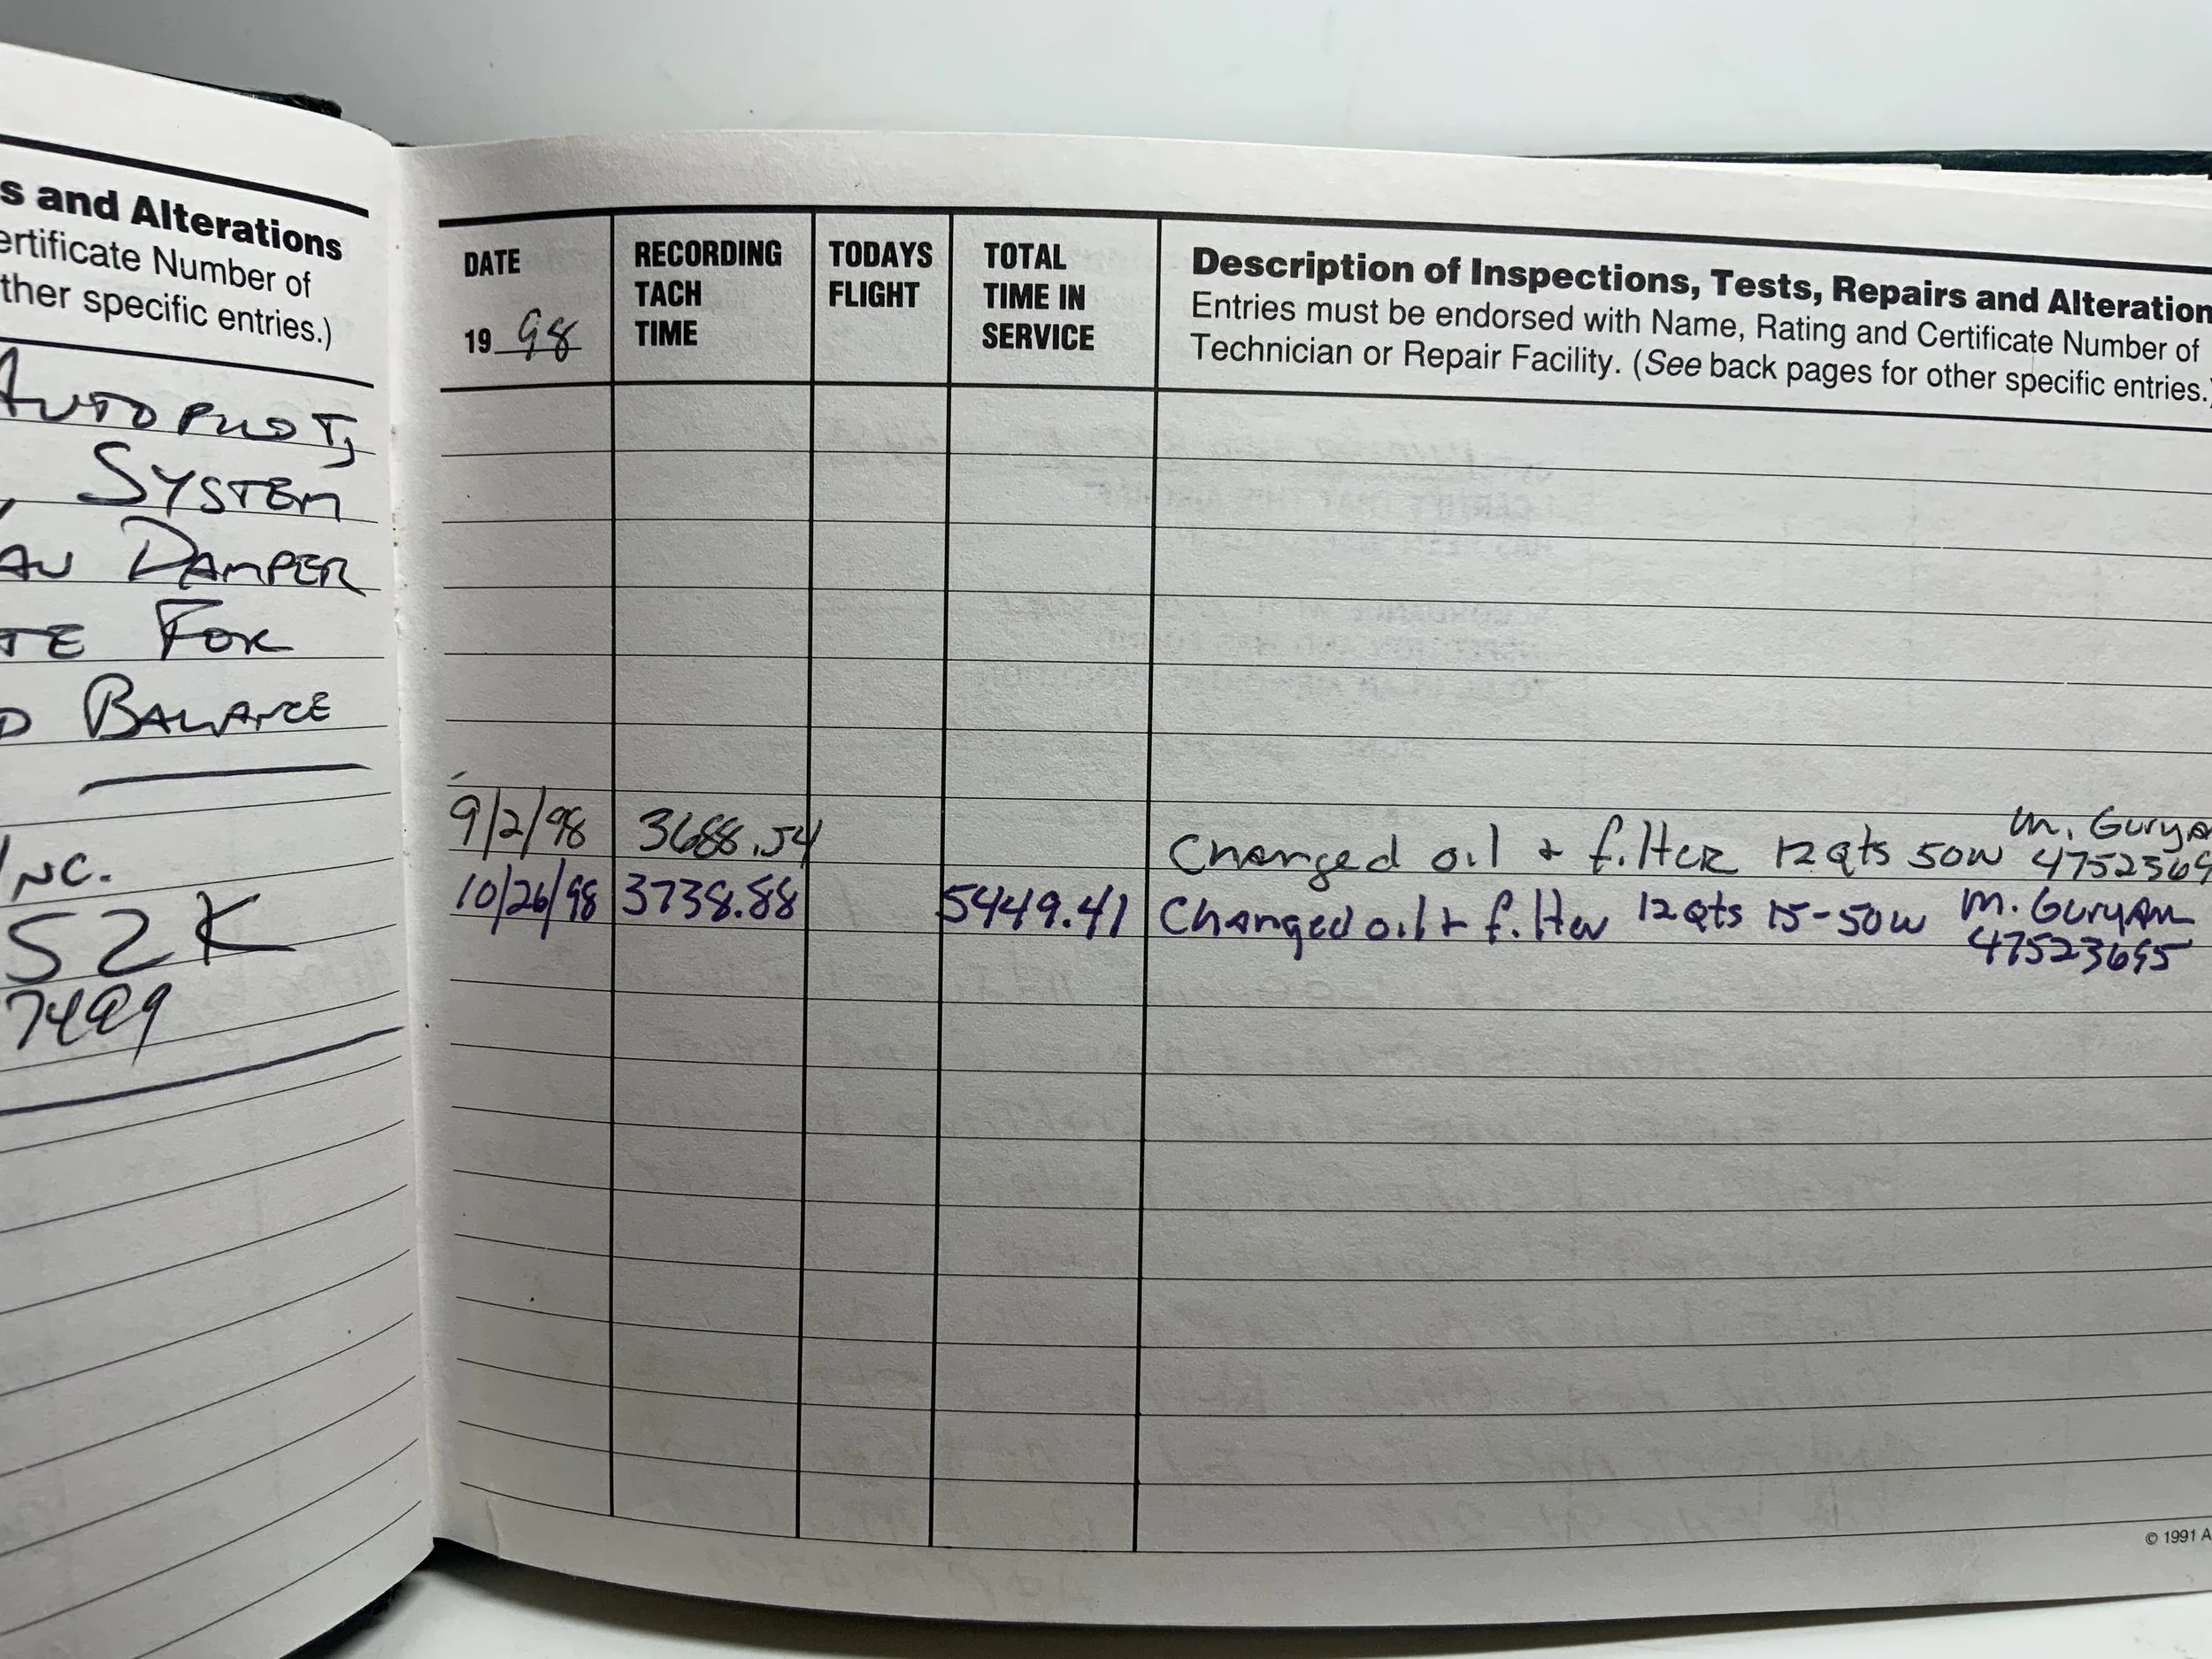 s and Alterations
ertificate Number of
ther specific entries.)
AUTOPILOT,
, SYSTEM
AW DAMPER
TE FOR
D BALANCE
INC.
52K
7499
DATE
19 98
RECORDING
TACH
TIME
TODAYS
FLIGHT
TOTAL
TIME IN
SERVICE
Description of Inspections, Tests, Repairs and Alteration
Entries must be endorsed with Name, Rating and Certificate Number of
Technician or Repair Facility. (See back pages for other specific entries.)
9/2/98 3688.54 Changed oil + filter 12 qts 50w M. Gurya
4752369
10/26/98 3738.88 5449.41 Changed oil + filter 12 qts 15-50w M. Guryan
47523695
© 1991 A